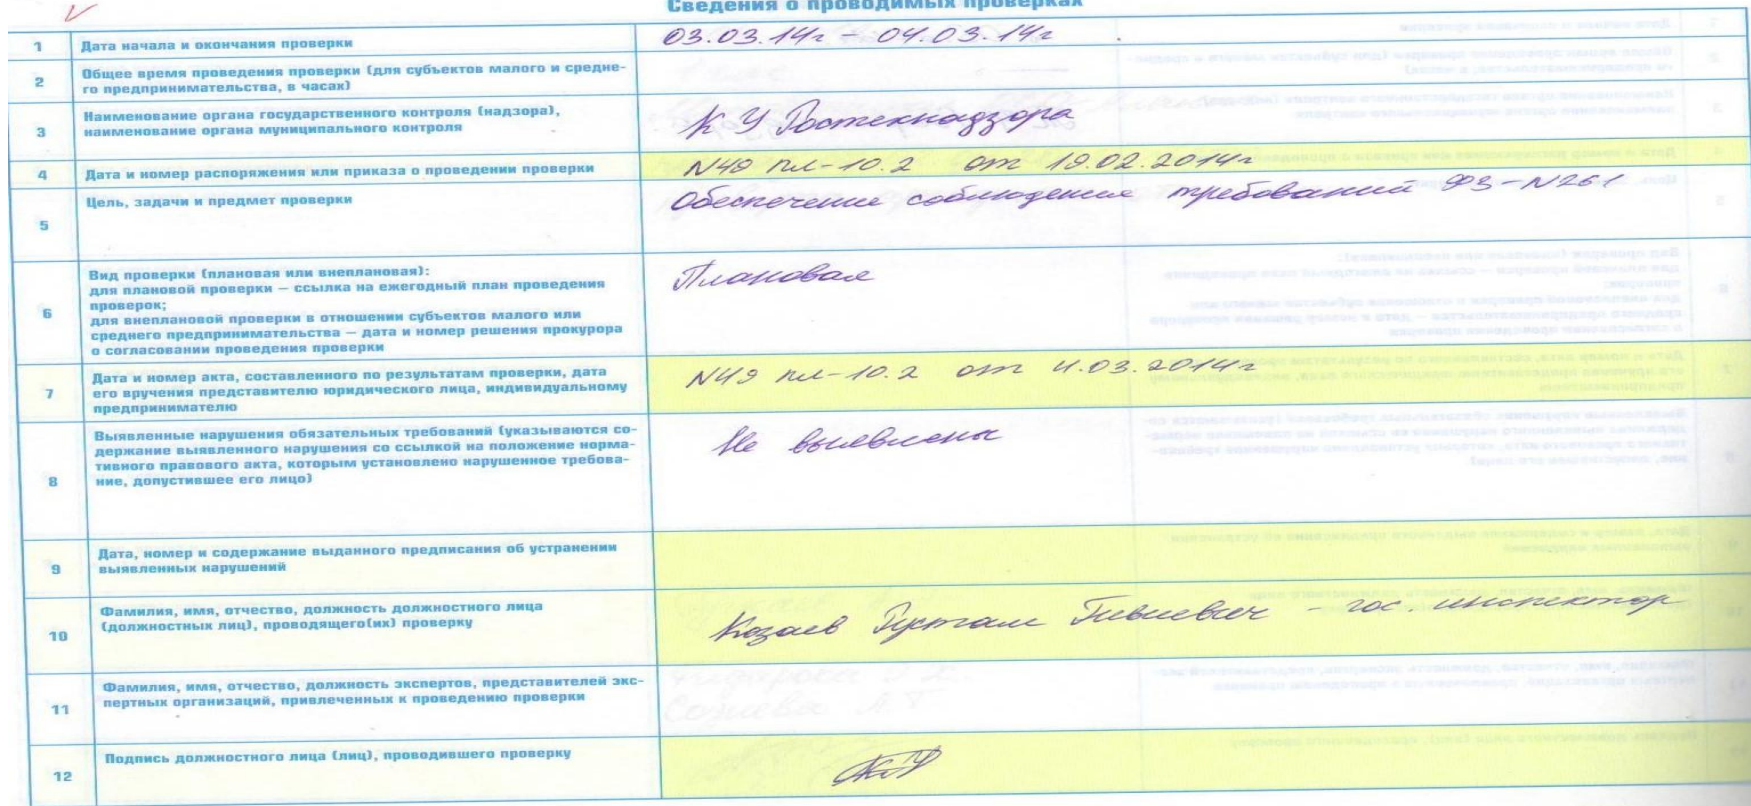 Сведения о проводимых проверках
1 Дата начала и окончания проверки 03.03.14г – 04.03.14г
2 Общее время проведения проверки (для субъектов малого и средне-
го предпринимательства, в часах)
3 Наименование органа государственного контроля (надзора),
наименование органа муниципального контроля
К У Ростехнадзора
4 Дата и номер распоряжения или приказа о проведении проверки N49 пл-10.2 от 19.02.2014г
5 Цель, задачи и предмет проверки Обеспечение соблюдения требований ФЗ-N261
6 Вид проверки (плановая или внеплановая):
для плановой проверки — ссылка на ежегодный план проведения
проверок;
для внеплановой проверки в отношении субъектов малого или
среднего предпринимательства — дата и номер решения прокурора
о согласовании проведения проверки
Плановая
7 Дата и номер акта, составленного по результатам проверки, дата
его вручения представителю юридического лица, индивидуальному
предпринимателю
N49 пл-10.2 от 4.03.2014г
8 Выявленные нарушения обязательных требований (указываются со-
держание выявленного нарушения со ссылкой на положение норма-
тивного правового акта, которым установлено нарушенное требова-
ние, допустившее его лицо)
Не выявлены
9 Дата, номер и содержание выданного предписания об устранении
выявленных нарушений
10 Фамилия, имя, отчество, должность должностного лица
(должностных лиц), проводящего(их) проверку
Козаев Рустам Гивиевич – гос. инспектор
11 Фамилия, имя, отчество, должность экспертов, представителей экс-
пертных организаций, привлеченных к проведению проверки
12 Подпись должностного лица (лиц), проводившего проверку